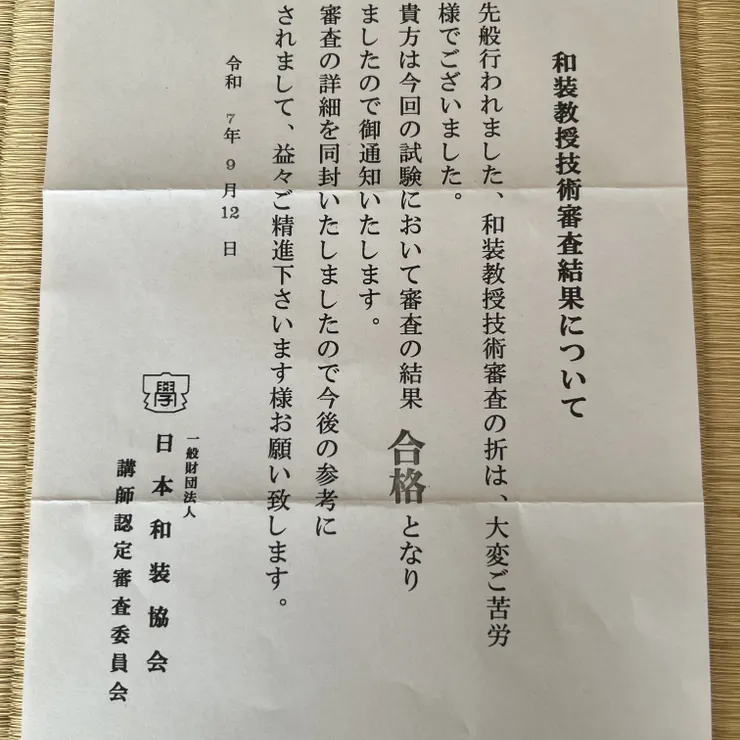 和装教授技術審査結果について
先般行われました、和装教授技術審査の折は、大変ご苦労
様でございました。
貴方は今回の試験において審査の結果 合格となり
ましたので御通知いたします。
審査の詳細を同封いたしましたので今後の参考に
されまして、益々ご精進下さいます様お願い致します。
令和 7年 9月12日
學
一般財団法人
日本和装協会
講師認定審査委員会